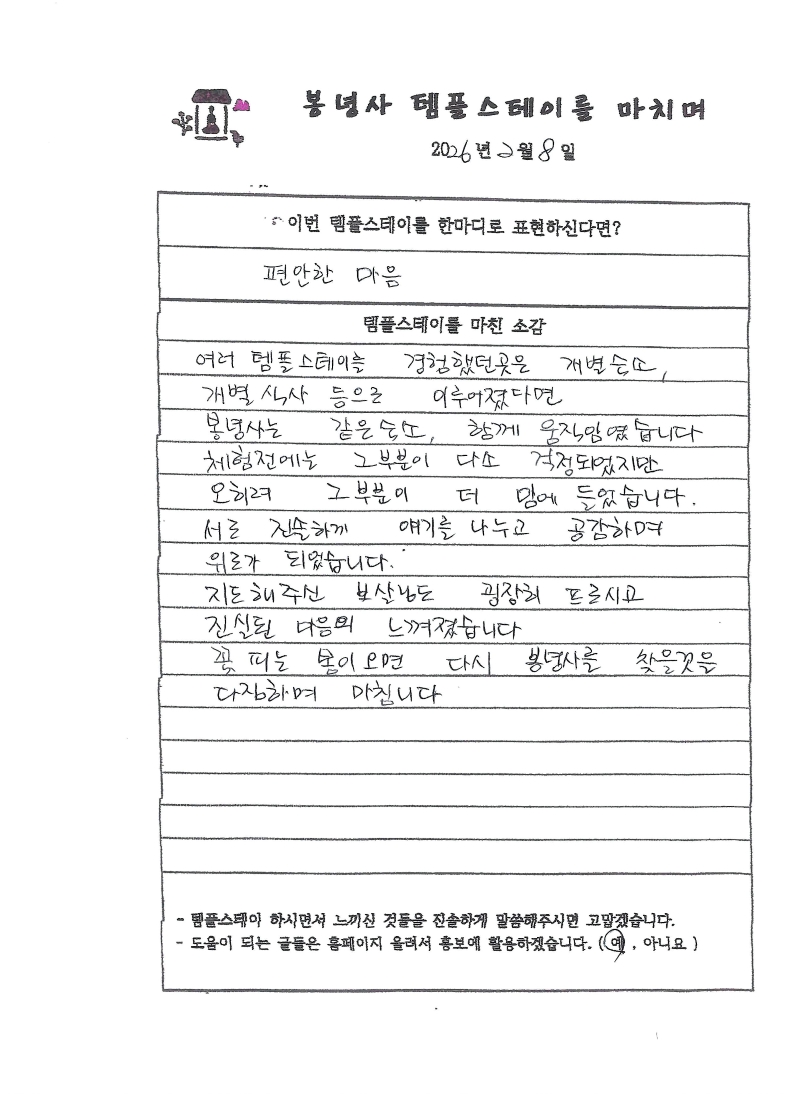 봉녕사 템플스테이를 마치며
2026년 2월 8일
이번 템플스테이를 한마디로 표현하신다면?
편안한 마음
템플스테이를 마친 소감
여러 템플스테이를 경험했던곳은 개별숙소,
개별식사 등으로 이루어졌다면
봉녕사는 같은숙소, 함께 움직임였습니다
체험전에는 그부분이 다소 걱정되었지만
오히려 그부분이 더 맘에 들었습니다.
서로 진솔하게 얘기를 나누고 공감하며
위로가 되었습니다.
지도해주신 보살님도 굉장히 프로시고
진실된 마음의 느껴졌습니다
꽃 피는 봄이오면 다시 봉녕사를 찾을것을
다짐하며 마칩니다
- 템플스테이 하시면서 느끼신 것들을 진솔하게 말씀해주시면 고맙겠습니다.
- 도움이 되는 글들은 홈페이지 올려서 홍보에 활용하겠습니다. ( 예 , 아니요 )